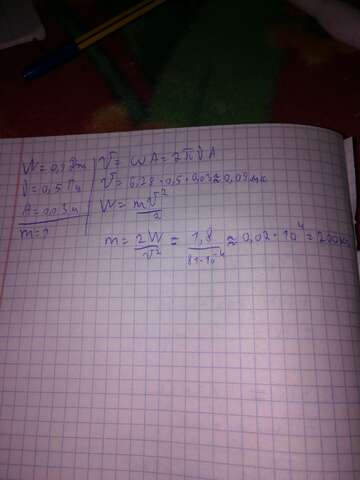 W = 0,9 Дж
ν = 0,5 Гц
A = 0,03 м
m = ?
V = ωA = 2πνA
V = 6,28 · 0,5 · 0,03 ≈ 0,09 м/с
W = mV²/2
m = 2W/V² = 1,8/81·10⁻⁴ ≈ 0,02 · 10⁴ = 200 кг